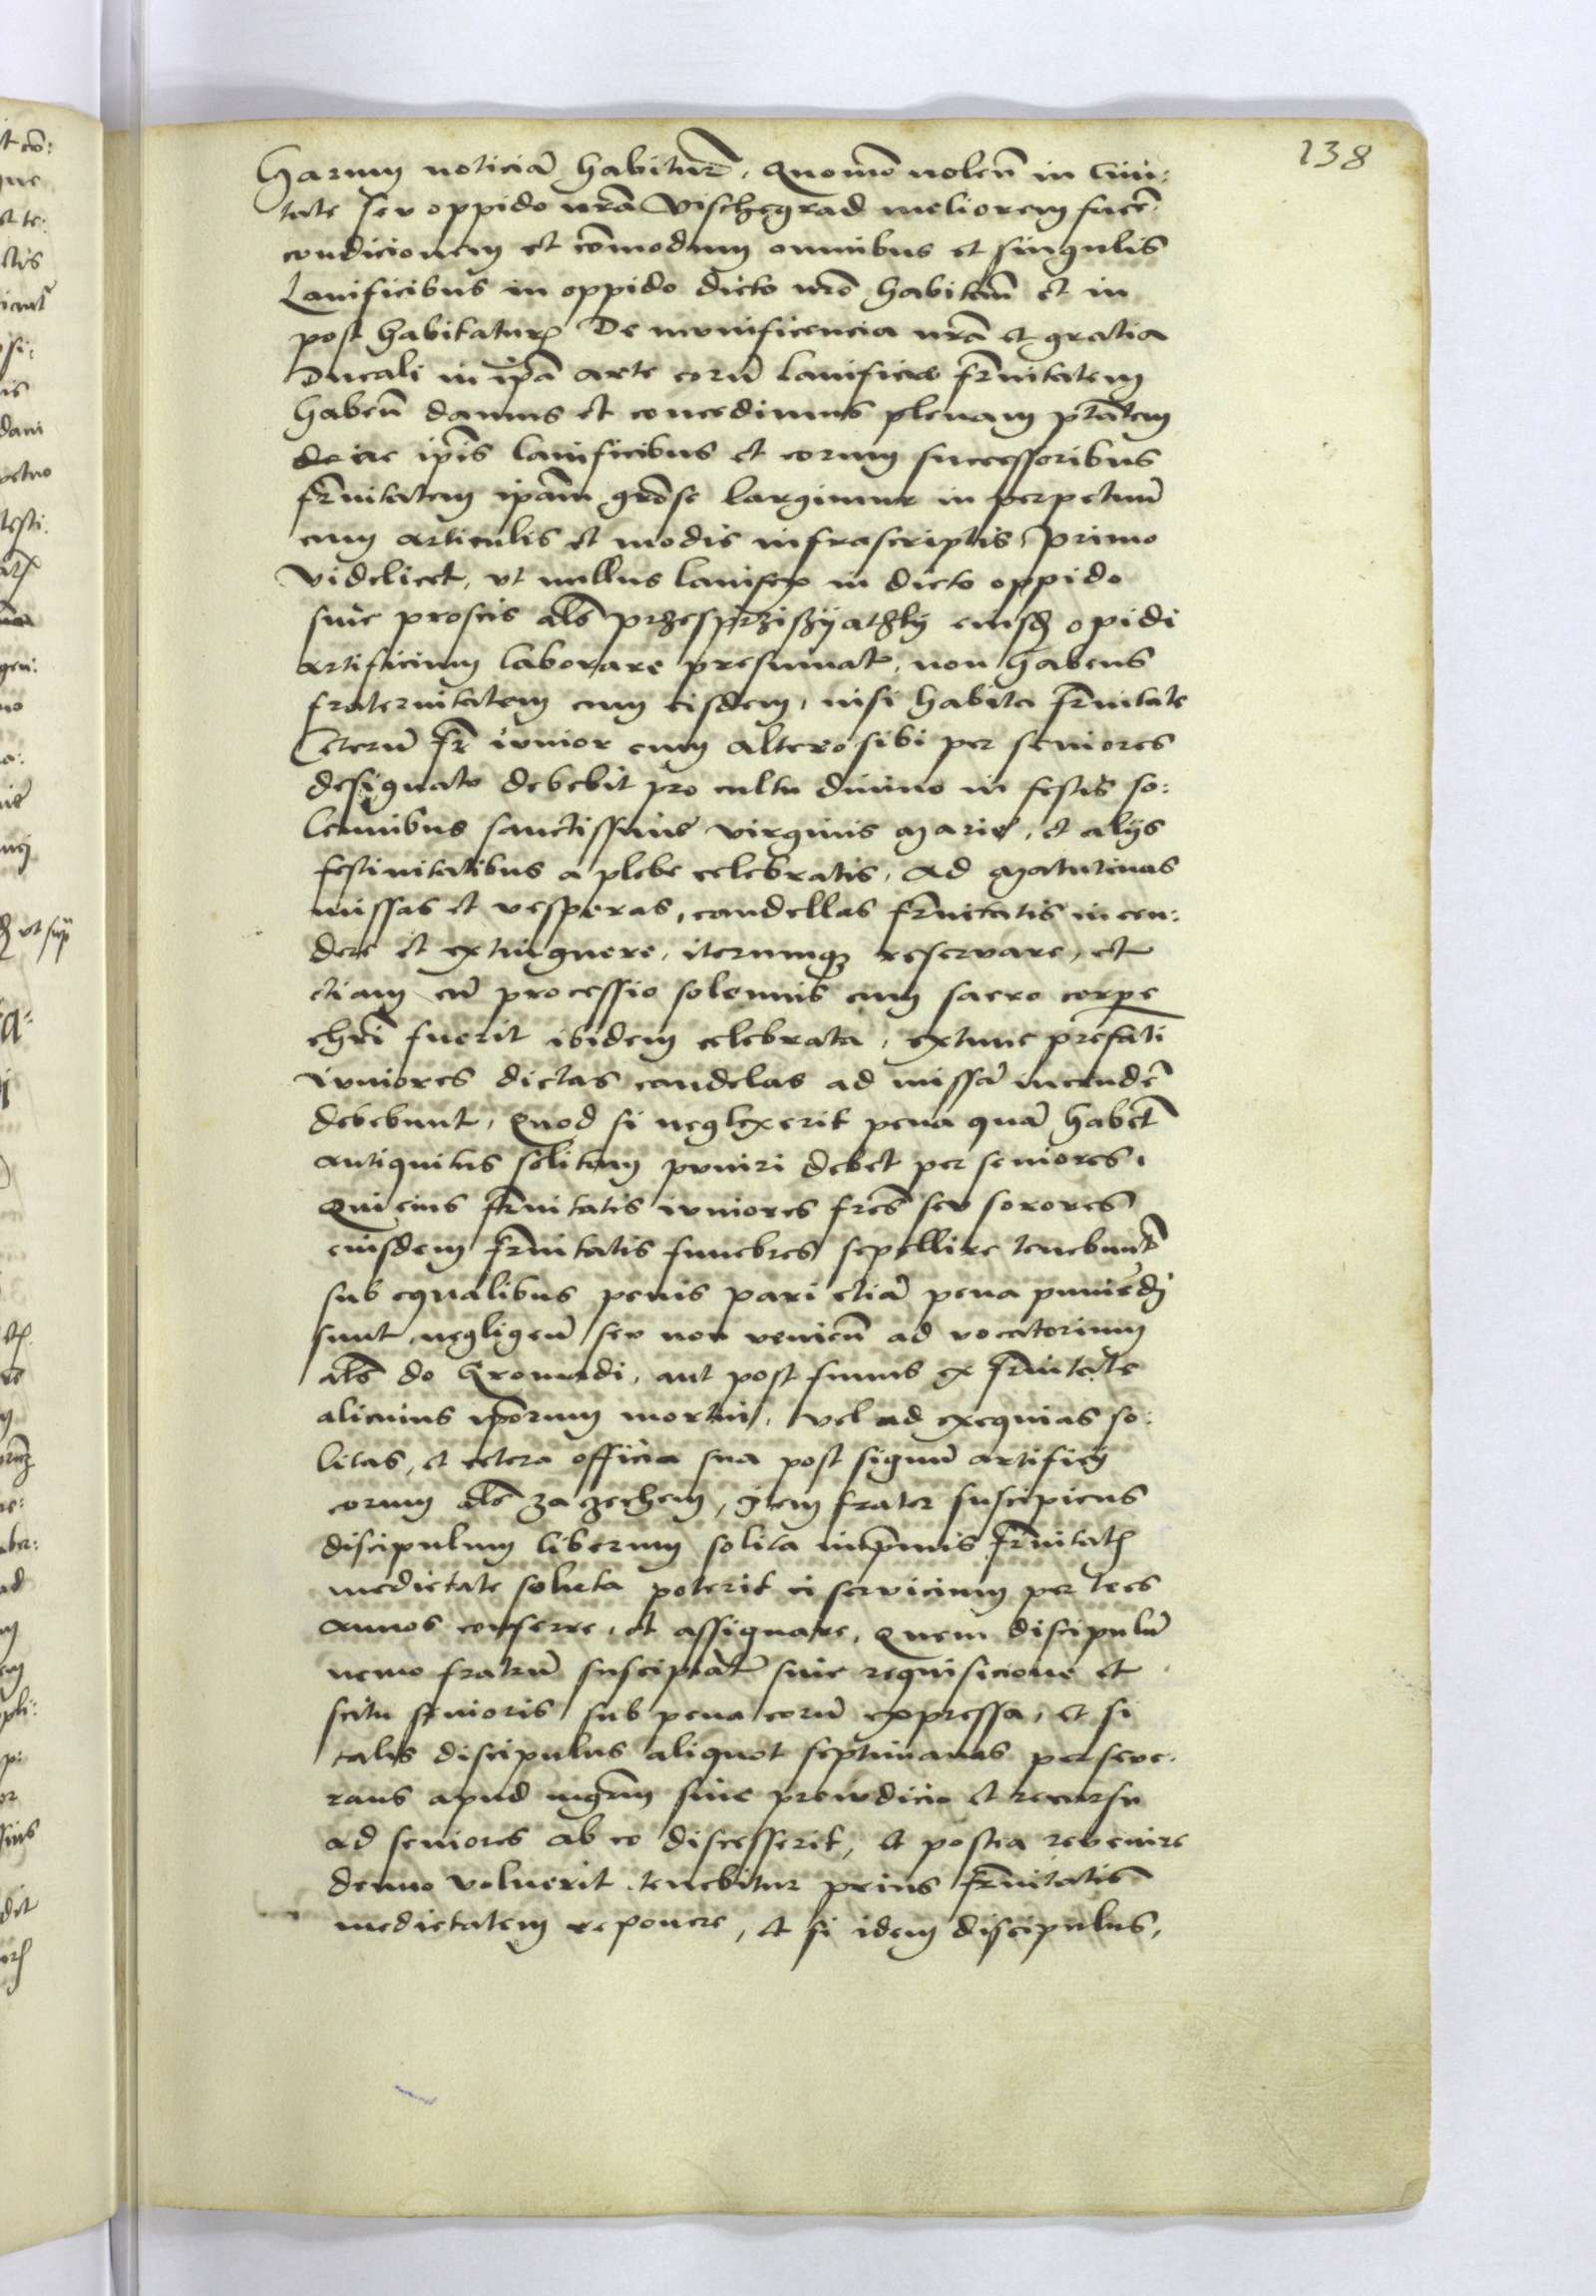 138
Harum noticiā habiturῖ. Quomō volen̄ in Ciui:
tate seu oppido nrō Vischegrad meliorem facē
condicionem et cōmodum omnibus et singulis
Lanificibus in oppido dicto nrō habitan̄ et in
post habitatur̄ De munificencia nrā et gratia
Ducali in ip̄a arte eorū lanificea fr̄nitatem
haben̄ damus et concedimus plenam ptātem
ac ip̄is lanificibus et eorum successoribus
fr̄nitatem ip̄am grōse largimur in perpetuū
cum articulis et modis infrascriptis, Primo
Videlicet, vt nullus lanifex in dicto oppido
sine proscis als̄ przesprziszyathly eiusd̄ opidi
artificium laborare presumat, non habens
fraternitatem cum eisdem, nisi habita fr̄nitate
Ceterū fr̄ iunior cum altero sibi per seniores
designato debebit pro cultu diuino in festis so:
lennibus sanctissime virginis Marie, et alijs
festiuitatibus a plebe celebratis, ad Matutinas
missas et vesperas, candellas fr̄nitatis incen:
dere et extinguere, iterumq3 reservare, et
etiam cū processio solennis cum sacro corpe
chrī fuerit ibidem celebrata, extunc prefati
iuniores dictas candelas ad missā incendē
debebunt, Quod si neglexerit pena quā habet̄
antiquitus solitam puniri debet per seniores.
Qui eius fr̄nitatis iuniores fres̄ seu sorores
eiusdem fr̄nitatis funebres sepellire tenebunt̄
sub equalibus penis pari etiā pena puniēdj
sunt negligen̄ seu non venien̄ ad vocatorium
als̄ do Gromadi, aut post funus ex fr̄nitate
alicuius ip̄orum mortui, vel ad exequias so:
litas, et cetera officia sua post signū artificij
eorum als̄ za czechem, Item frater suscipiens
discipulum liberum solita inprimis fr̄nitat̄
medietate soluta poterit ei servicium per tres
annos conferre, et assignare, Quem discipulū
nemo fratrū suscipiat̄ sine requisicione et
scitu senioris sub pena eorū expressa, et si
talis discipulus aliquot septimanas perseve:
rans apud mgrm̄ sine preiudicio et recursu
ad seniores ab eo discesserit, et postea revenire
denuo voluerit tenebitur prius fr̄nitatis
medietatem reponere, et si idem discipulus,